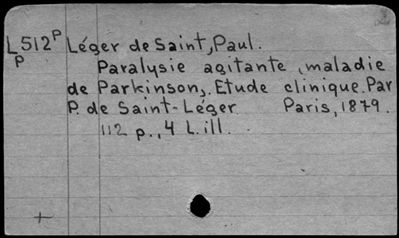 L512P Léger de Saint, Paul.
P
Paralysie agitante (maladie
de Parkinson). Etude clinique. Par
P. de Saint-Léger Paris, 1879.
112 p., 4 l. ill.